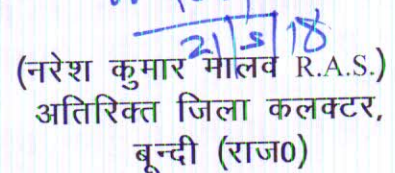 21/5/18
(नरेश कुमार मालव R.A.S.)
अतिरिक्त जिला कलक्टर,
बून्दी (राज0)